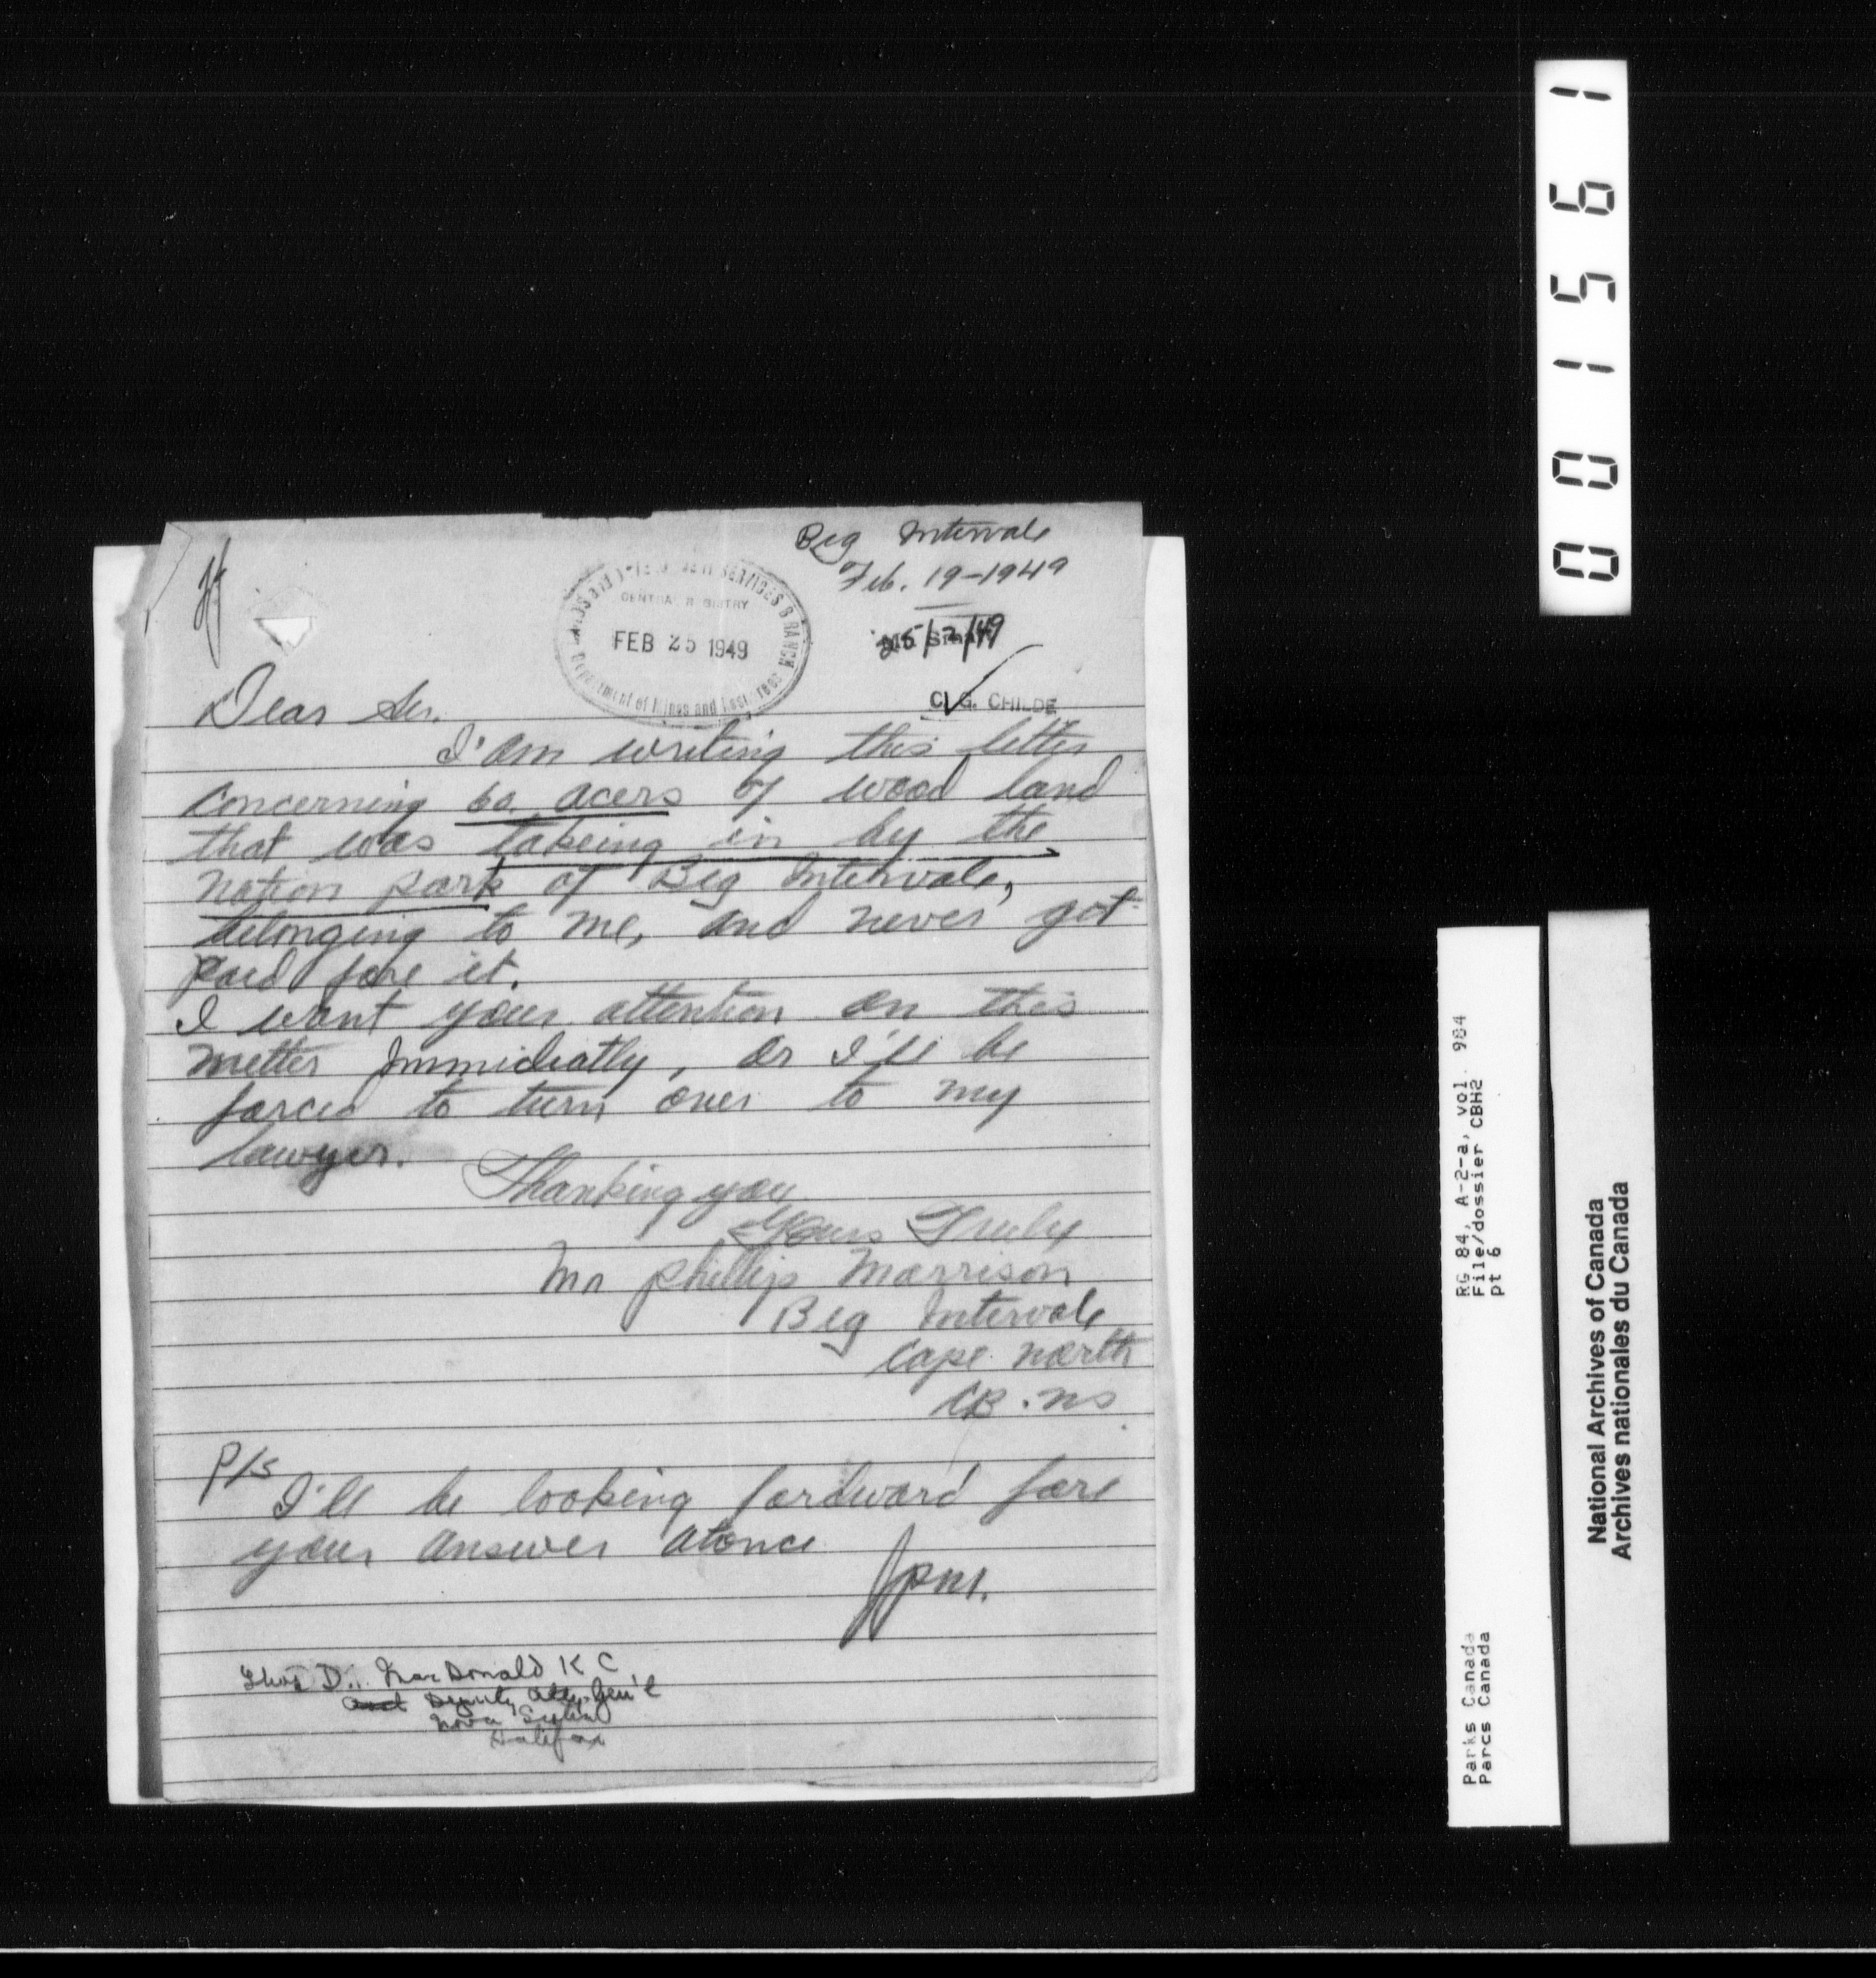 Big Intervale
Feb. 19-1949
CENTRAL REGISTRY
FEB 25 1949
Department of Mines and Resources
25/2/49
C. G. CHILDE
Dear Sir.
I'am writing this letter
concerning 60 acers of wood land
that was takeing in by the
nation park of Big Intervale,
belonging to me, and never got
paid fore it.
I want your attention on this
metter Immidiatly, or I'll be
forced to turn over to my
lawyer.
Thanking you
Yours Truly
Mr Phillip Morrison
Big Intervale
Cape North
CB. NS
P/S
I'll be looking fordward fore
your answer atonce
PM.
Thos D. MacDonald K C
Deputy Atty-Gen'l
Nova Scotia
Halifax
001561
RG 84, A-2-a, vol. 984
File/dossier CBH2
pt 6
Parks Canada
Parcs Canada
National Archives of Canada
Archives nationales du Canada